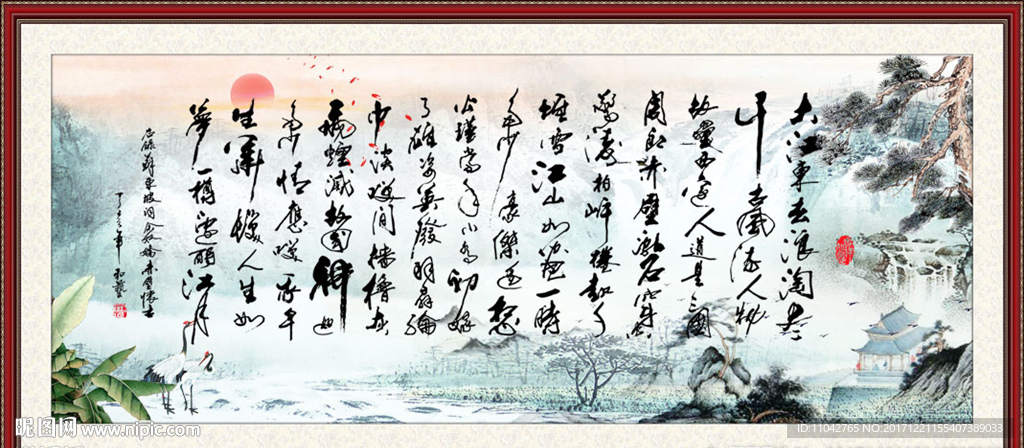 大江東去浪淘盡
千古風流人物
故壘西邊人道是三國
周郎赤壁亂石穿空
驚濤拍岸捲起千
堆雪江山如畫一時
多少豪傑遙想
公瑾當年小喬初嫁
了雄姿英發羽扇綸
巾談笑間檣櫓灰
飛煙滅故國神遊
多情應笑我早
生華髮人生如
夢一樽還酹江月
錄蘇東坡詞念奴嬌赤壁懷古
昵图网 www.nipic.com
ID:11042765 NO:20171221155407389033